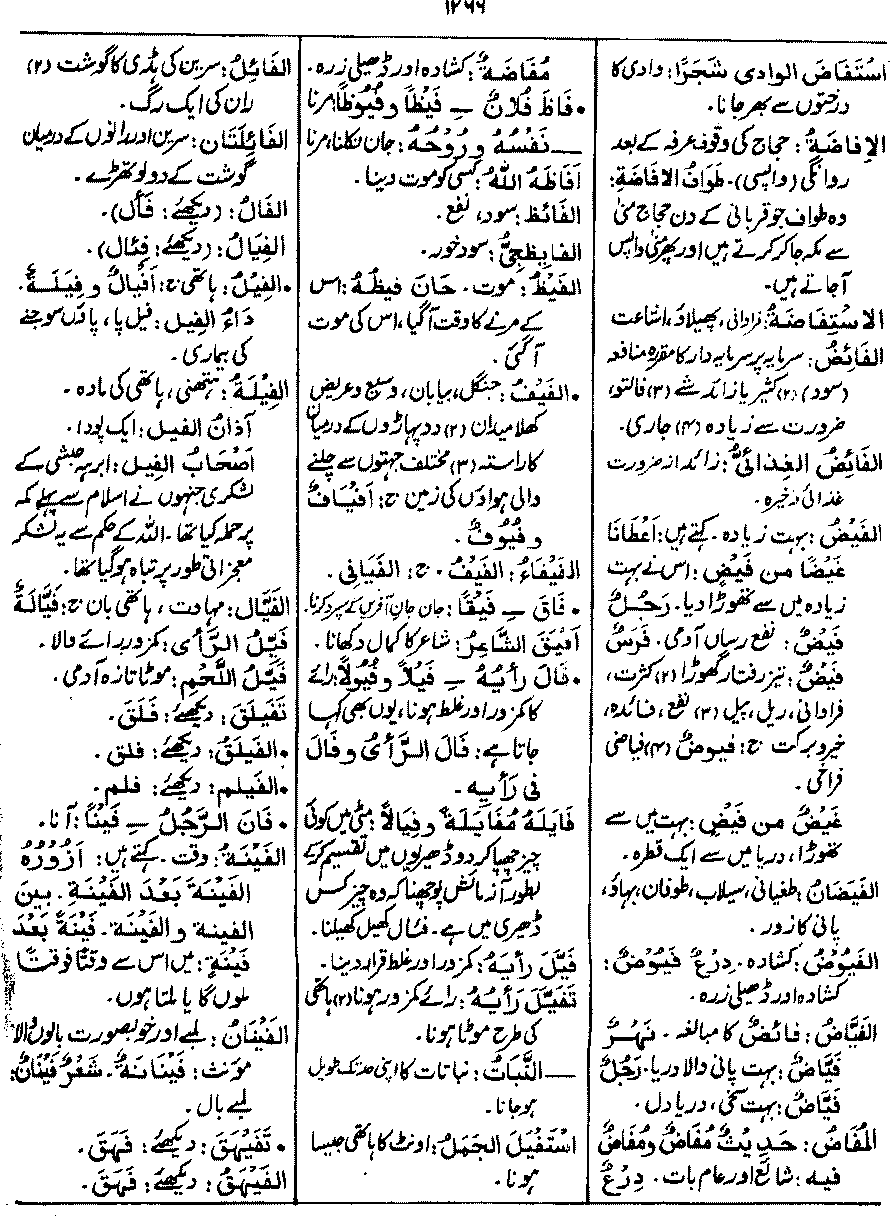 ۱۲۶۶
اسْتَفَاضَ الوادي شَجَرًا: وادی کا
درختوں سے بھر جانا۔
الإفاضَةُ: حجاج کی وقوف عرفہ کے بعد
روانگی (واپسی)۔ طَوَافُ الافَاضَةِ:
وہ طواف جو قربانی کے دن حجاج منیٰ
سے مکہ جا کر کرتے ہیں اور پھر منیٰ واپس
آجاتے ہیں۔
الاسْتِفَاضَةُ: فراوانی، پھیلاؤ، اشاعت
الفَائِضُ: سرمایہ پر سرمایہ دار کا مقررہ منافعہ
(سود) (۲) کثیر یا زائد شے (۳) فالتو،
ضرورت سے زیادہ (۴) جاری۔
الفَائِضُ الغِذَائیُّ: زائد از ضرورت
غذائی ذخیرہ۔
الفَيْضُ: بہت زیادہ۔ کہتے ہیں: أَعْطَانَا
غَيْضًا من فَيْضٍ: اس نے بہت
زیادہ میں سے تھوڑا دیا۔ رَجُلٌ
فَيْضٌ: نفع رساں آدمی۔ فَرَسٌ
فَيْضٌ: تیز رفتار گھوڑا (۲) کثرت،
فراوانی، ریل، پیل (۳) نفع، فائدہ،
خیر و برکت ج: فيوضٌ (۴) فیاضی
فراخی۔
غَيْضٌ من فَيْضٍ: بہت میں سے
تھوڑا، دریا میں سے ایک قطرہ۔
الفَيَضَانُ: طغیانی، سیلاب، طوفان، بہاؤ،
پانی کا زور۔
الفَيُوضُ: کشادہ۔ دِرْعٌ فَيُوضٌ:
کشادہ اور ڈھیلی زرہ۔
الفَيَّاضُ: فائضٌ کا مبالغہ۔ نَهْرٌ
فَيَّاضٌ: بہت پانی والا دریا۔ رَجُلٌ
فَيَّاضٌ: بہت سخی، دریا دل۔
المُفَاضُ: حَدِيثٌ مُفَاضٌ ومُفَاضٌ
فيه: شائع اور عام بات۔ دِرْعٌ
مُفَاضَةٌ: کشادہ اور ڈھیلی زرہ۔
• فَاظَ فُلَانٌ ــِ فَيْظًا وفُيُوظًا: مرنا
ــــ نَفْسُهُ و رُوْحُهُ: جان نکلنا، مرنا
أَفَاظَهُ اللهُ: کسی کو موت دینا۔
الفَائظ: سود، نفع۔
الفَايِظْجِيُّ: سودخور۔
الفَيْظُ: موت۔ حَانَ فيظُهُ: اس
کے مرنے کا وقت آگیا، اس کی موت
آگئی۔
• الفَيْفُ: جنگل، بیابان، وسیع و عریض
کھلا میدان (۲) دو پہاڑوں کے درمیان
کا راستہ (۳) مختلف جہتوں سے چلنے
والی ہواؤں کی زمین ج: أَفْيَافٌ
وفُيُوفٌ۔
الفَيْفَاءُ: الفَيْفُ۔ ج: الفَيَافي۔
• فَاقَ ــِ فَيْقًا: جان جان آفریں کے سپرد کرنا۔
أَفْيَقَ الشَّاعِرُ: شاعر کا کمال دکھانا۔
• فَالَ رأيُهُ ــِ فَيْلًا وفُيُولًا: رائے
کا کمزور اور غلط ہونا، یوں بھی کہا
جاتا ہے: فَالَ الرَّأْیُ وفَالَ
في رَأيِه۔
فَايَلَهُ مُفَايَلَةً وفِيَالًا: مٹی میں کوئی
چیز چھپا کر دو ڈھیریوں میں تقسیم کر کے
بطور آزمائش پوچھنا کہ وہ چیز کس
ڈھیری میں ہے۔ فئال کھیل کھیلنا۔
فَيَّلَ رأيَهُ: کمزور اور غلط قرار دینا۔
تَفَيَّلَ رَأيُهُ: رائے کمزور ہونا (۲) ہاتھی
کی طرح موٹا ہونا۔
ــــ النَّبَاتُ: نباتات کا اپنی حد تک طویل
ہوجانا۔
اسْتَفْيَلَ الجَمَلُ: اونٹ کا ہاتھی جیسا
ہونا۔
الفَائِلُ: سرین کی ہڈی کا گوشت (۲)
ران کی ایک رگ۔
الفَائِلَتَان: سرین اور رانوں کے درمیان
گوشت کے دو لوتھڑے۔
الفَالُ: (دیکھئے: فَأل)۔
الفِيَالُ: (دیکھئے: فِئال)۔
• الفِيْلُ: ہاتھی ج: أَفْيَالٌ وفِيَلَةٌ۔
دَاءُ الفِيل: فیل پا، پاؤں سوجنے
کی بیماری۔
الفِيْلَةُ: ہتھنی، ہاتھی کی مادہ۔
آذَانُ الفيل: ایک پودا۔
أَصْحَابُ الفِيل: ابرہہ حبشی کے
لشکری جنہوں نے اسلام سے پہلے مکہ
پر حملہ کیا تھا۔ اللہ کے حکم سے یہ لشکر
معجزاتی طور پر تباہ ہوگیا تھا۔
الفَيَّال: مہاوت، ہاتھی بان ج: فَيَّالَةٌ
فَيِّلُ الرَّأی: کمزور رائے والا۔
فَيِّلُ اللَّحْمِ: موٹا تازہ آدمی۔
تَفَيْلَقَ: دیکھئے: فَلَقَ۔
• الفَيْلَقُ: دیکھئے: فلق۔
• الفَيلم: دیکھئے: فلم۔
• فَانَ الرَّجُلُ ــِ فَيْنًا: آنا۔
الفَيْنَةُ: وقت۔ کہتے ہیں: أَزُوْرُهُ
الفَيْنَةَ بَعْدَ الفَيْنَةِ۔ بين
الفينة والفَيْنَة۔ فَيْنَةً بَعْدَ
فَيْنَةٍ: میں اس سے وقتًا فوقتًا
ملوں گا یا ملتا ہوں۔
الفَيْنَانُ: لمبے اور خوبصورت بالوں والا
مؤنث: فَيْنَانَةٌ۔ شَعْرٌ فَيْنَانٌ:
لمبے بال۔
• تَفَيْهَقَ: دیکھئے: فَهَقَ۔
الفَيْهَقُ: دیکھئے: فَهَقَ۔